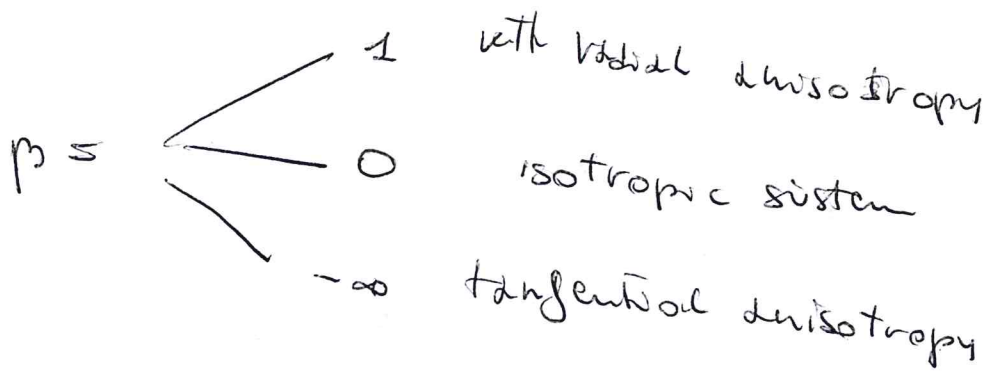 1 with radial anisotropy
β = 0 isotropic sistem
-∞ tangential anisotropy